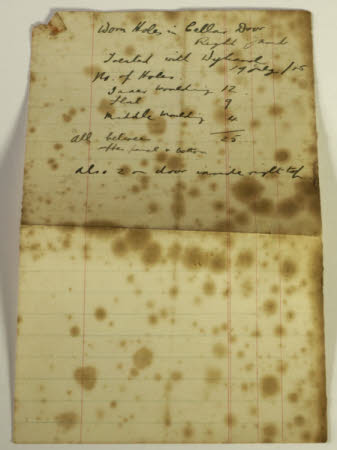 Worm Holes in Cellar Door
Right Jamb
Treated with
No. of Holes.
Inner Moulding 12
Flat 9
Middle Moulding 4
25
all between
panel + bottom
also 2 on door inside right top